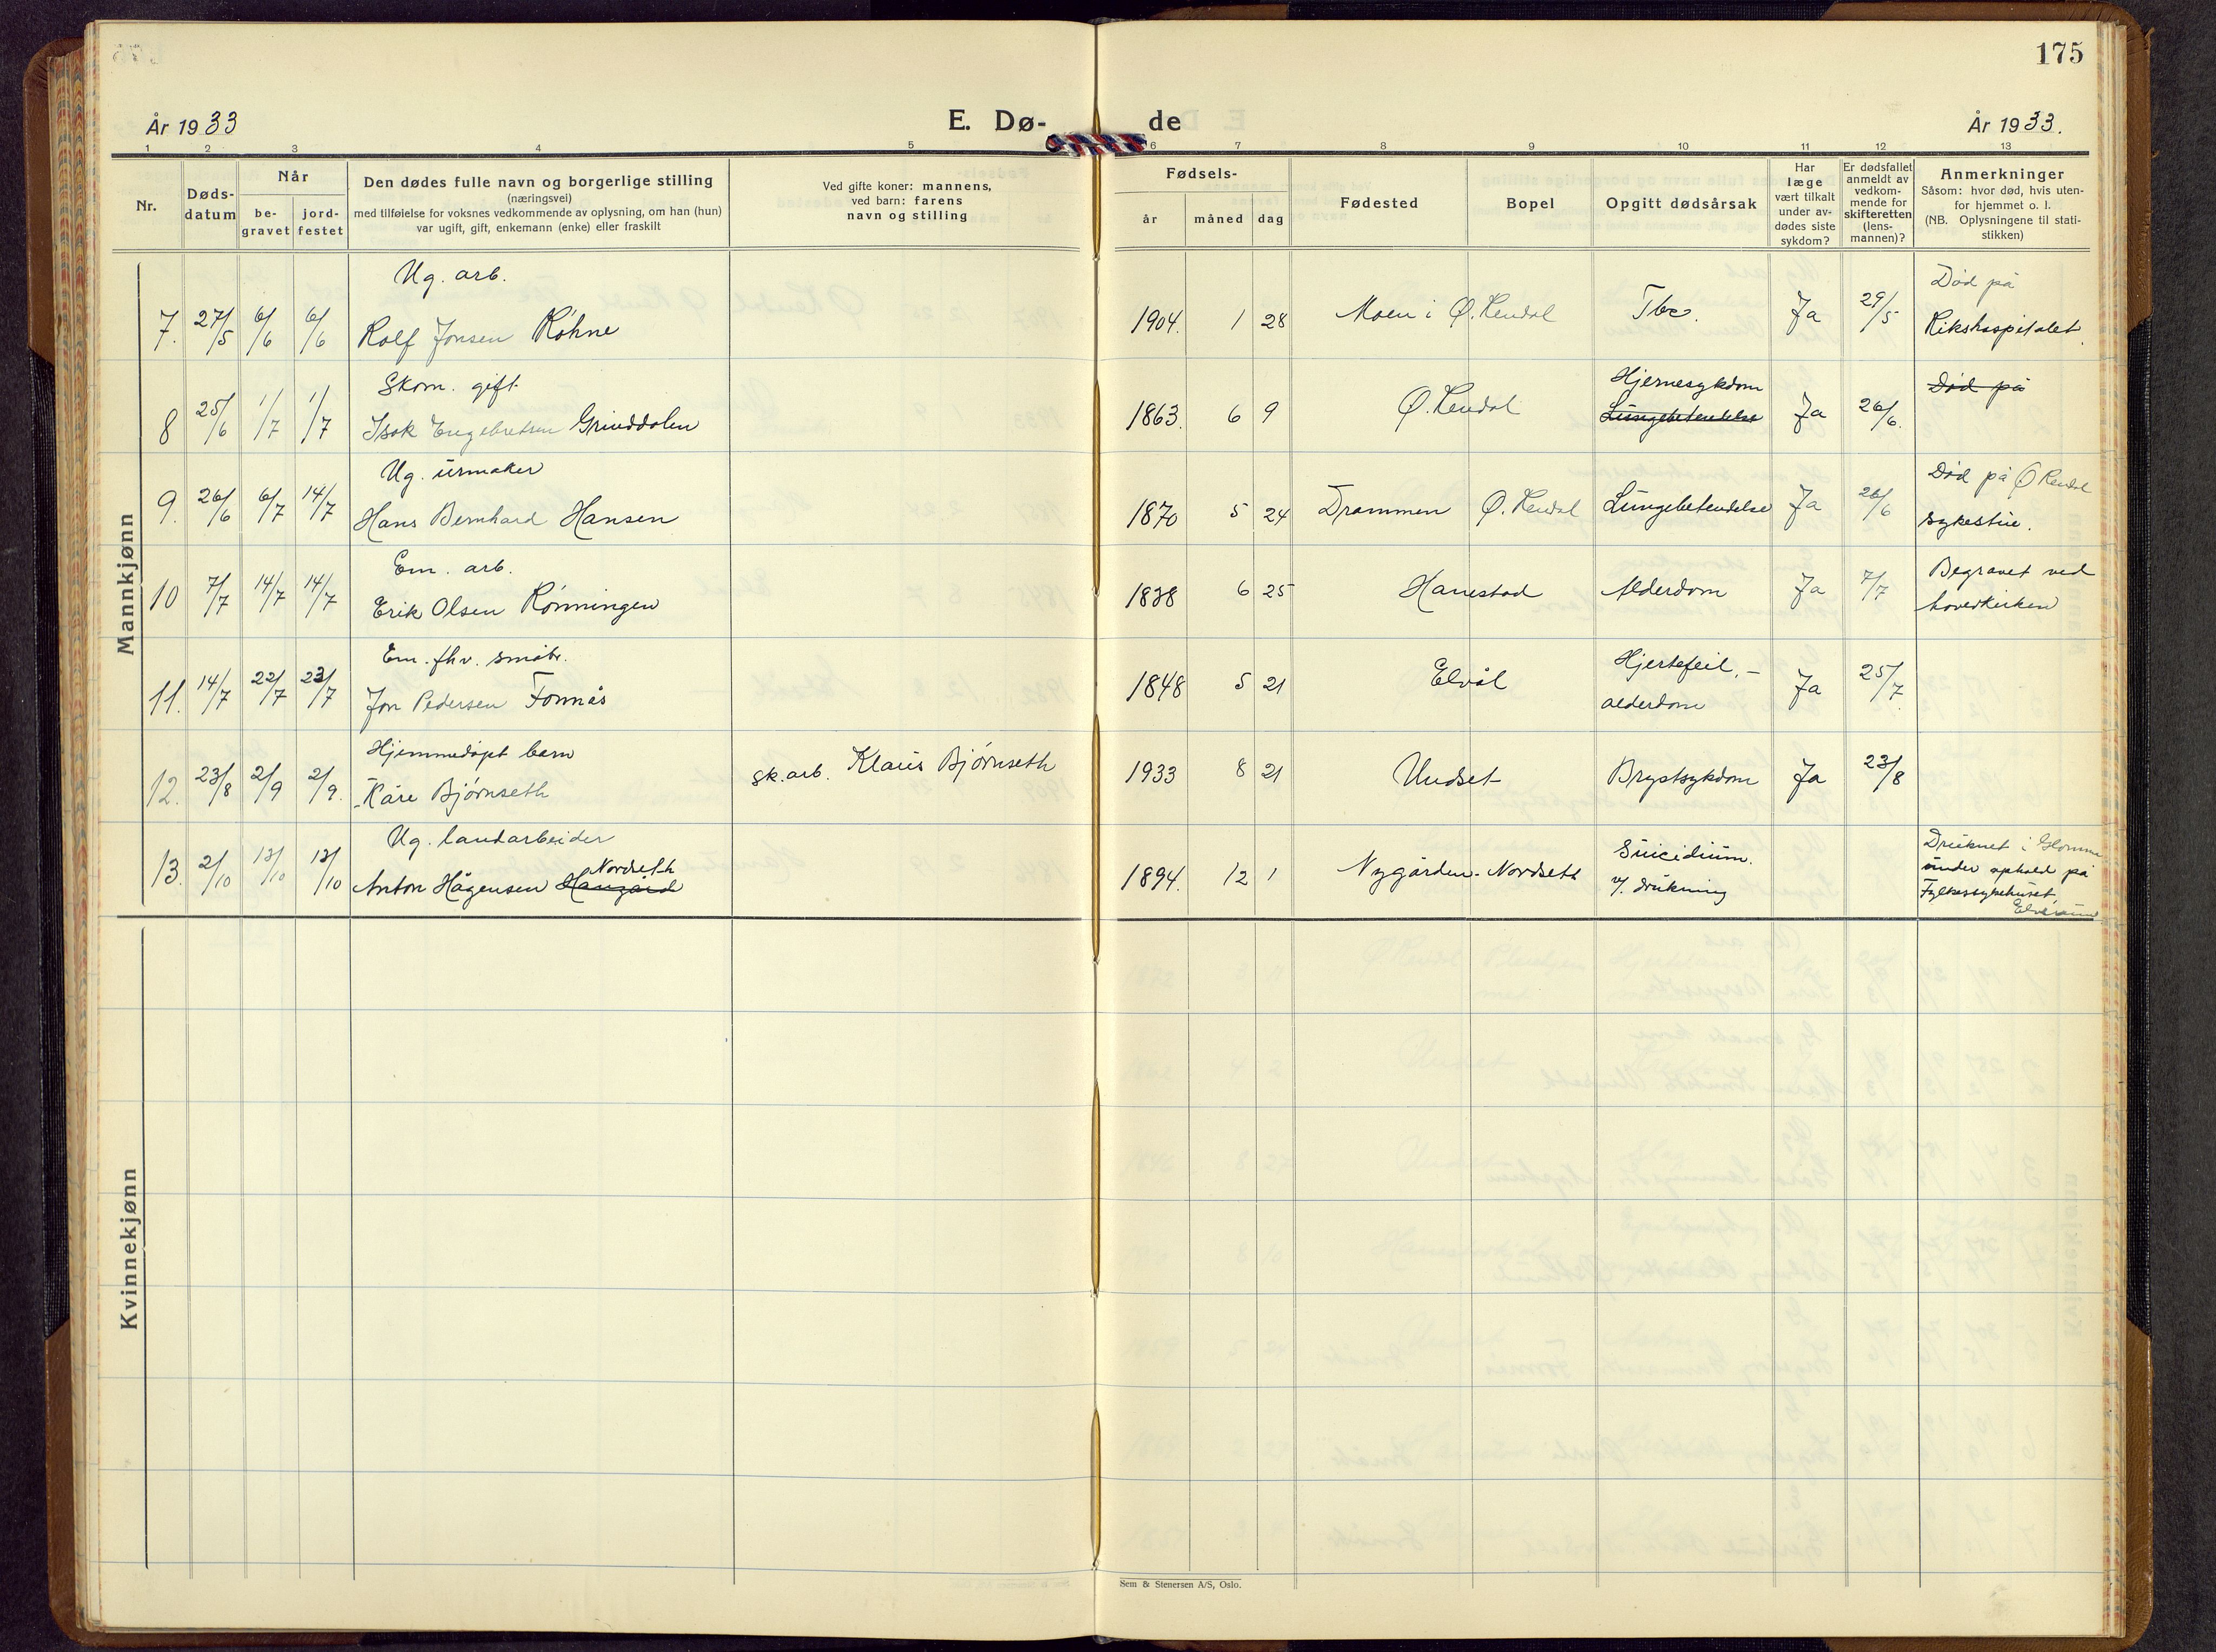 175
År 1933
E. Dø-
de
År 1933.
1 2 3 4 5 6 7 8 9 10 11 12 13
Nr.
Døds-
datum
Når
be-
gravet
jord-
festet
Den dødes fulle navn og borgerlige stilling
(næringsvei)
med tilføielse for voksnes vedkommende av oplysning, om han (hun)
var ugift, gift, enkemann (enke) eller fraskilt
Ved gifte koner: mannens,
ved barn: farens
navn og stilling
Fødsels-
år måned dag
Fødested
Bopel
Opgitt dødsårsak
Har
læge
vært tilkalt
under av-
dødes siste
sykdom?
Er dødsfallet
anmeldt av
vedkom-
mende for
skifteretten
(lens-
mannen)?
Anmerkninger
Såsom: hvor død, hvis uten-
for hjemmet o. l.
(NB. Oplysningene til stati-
stikken)
Mannkjønn
Ug. arb.
7. 27/5 6/6 6/6 Rolf Jonsen Röhne 1904. 1 28 Moen i Ø. Rendal Tbc. Ja 29/5
Død på
Rikshospitalet.
Skom. gift.
8 25/6 1/7 1/7 Isak Engebretsen Grinddalen 1863. 6 9 Ø. Rendal
Hjernesykdom
Lungebetendelse
Ja 26/6.
Død på
Ug. urmaker
9. 26/6 6/7 14/7 Hans Bernhard Hansen 1870 5 24 Drammen Ø. Rendal Lungebetendelse Ja 26/6
Død på Ø Rendal
sykestue.
Em. arb.
10 7/7 14/7 14/7 Erik Olsen Rønningen 1838 6 25 Hanestad Alderdom Ja 7/7
Begravet ved
hovedkirken
Em. fhv. småbr.
11. 14/7 22/7 23/7 Jon Pedersen Fonnås 1848 5 21 Elvål
Hjertefeil, -
alderdom
Ja 25/7
Hjemmedøpt barn
12. 23/8 2/9 2/9. Kåre Bjørnseth sk.arb. Klaus Bjørnseth 1933 8 21 Undset Brystsykdom Ja 23/8
Ug. landarbeider
Nordseth
13. 2/10 13/10 13/10 Anton Hågensen Haugård 1894. 12 1 Nygården - Nordseth
Suicidium.
v/. drukning
Druknet i Glomma
under ophold på
Fylkessykehuset,
Elverum
Kvinnekjønn
Sem & Stenersen A/S, Oslo.